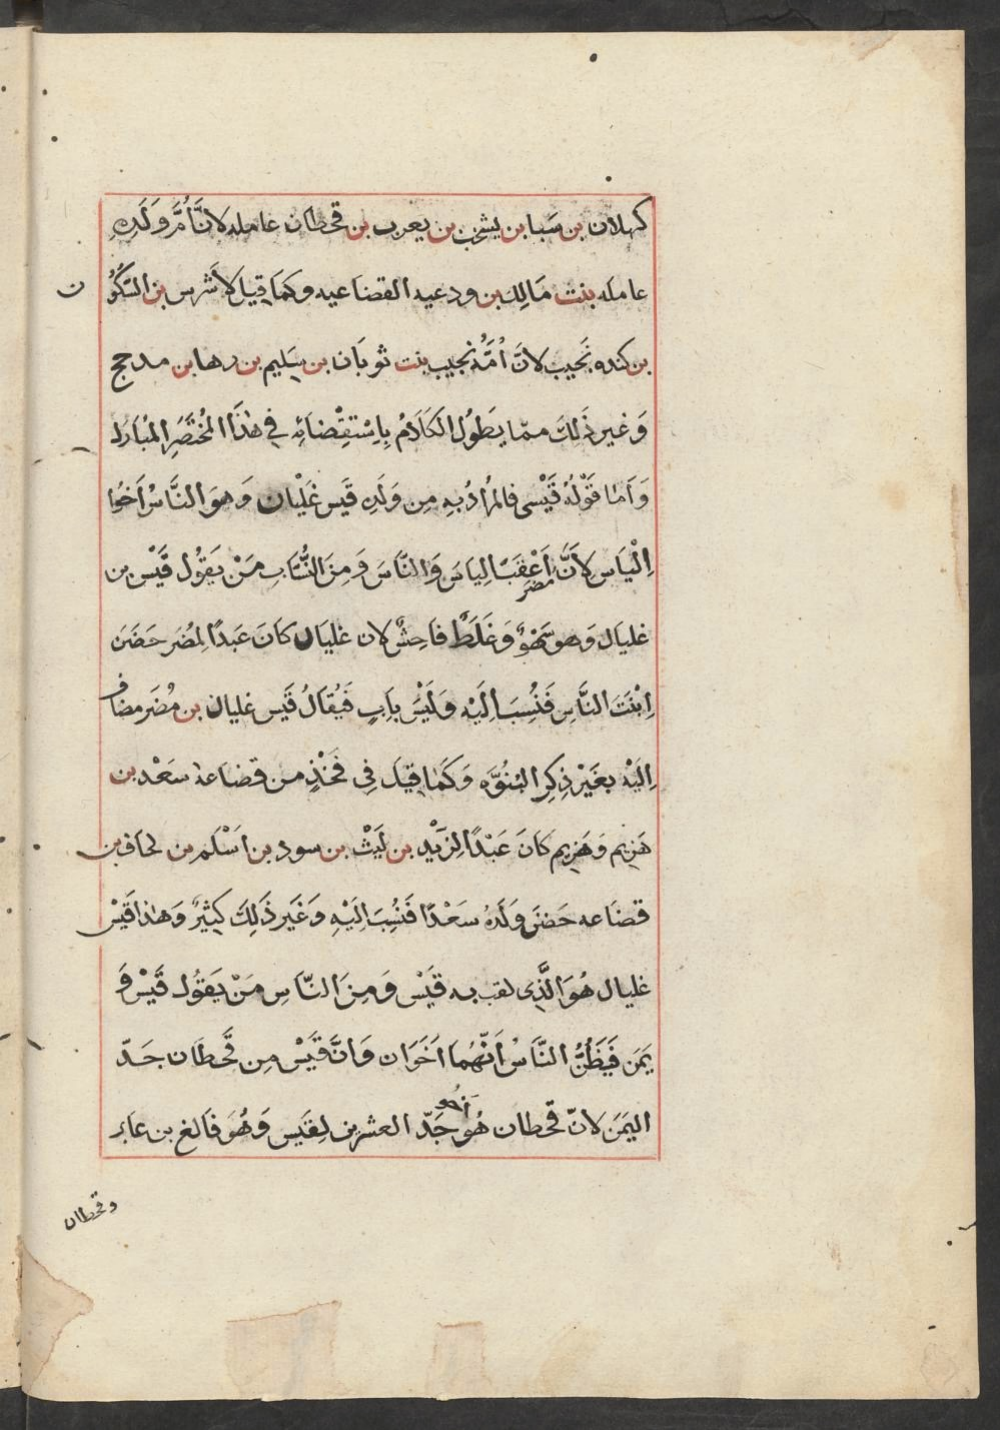 كهلان بن سَبا بن يشجب بن يعرب بن قحطان عامله لانَّ أمَّ وَلَدِهِ
عامله بنت مَالِك بن ودعيه القضاعيه وكمَا قيل لاَشرس بن السَّكُو
ن
بن كنده نَجيب لانَّ اُمَّهُ نجيب بنت ثوبَان بن سَلِيم بن رها بن مدحج
وَغير ذَلك ممّا يَطُول الكَلاَمُ بِاسْتقِْضَائه فِي هٰذَا المُخْتَصَرِ المُبَارَك
وَاَمّا قَوْلُهُ قَيْسى فالمُرادُ بهِ مِن وَلَدِ قَيس غَلْيان وَهوَ النَّاسُ اَخُوا
اِلْيَاس لاَنَّ مُضر اَعْقَبَ اليَاسَ وَالنَّاسَ وَمِنَ النُّسَّابِ مَنْ يَقُول قَيْس بن
غليال وَهو سَهْوٌ وَغَلَطٌ فاحِشٌ لان غليال كانَ عَبدًا لمُضَر حَضَنَ
اِبْنَتَ النَّاس فَنُسِبَ الَيْه وَلَيْسَ بِاَبٍ فَيُقَالُ قَيس غليان بن مُضَر مضاف
اِلَيْه بِغَيْر ذِكِر البُنوَّه وَكَمَا قيلَ فِي فَخْذٍ من قضاعة سَعْد بن
هَزيم وَهَزيم كَانَ عَبْدًا لزَيْد بن لَيْث بن سود بن اَسْلَم بن لحاف بن
قضَاعه حَضَنَ وَلَدَهُ سَعْدًا فَنُسِبَ الَيْهِ وَغَير ذَلِكَ كَثِيرٌ وَهٰذا قَيْس
غليال هُوَ الَّذِى لقب به قَيْس وَمِنَ النّاسِ مَنْ يَقُول قَيْس وَ
يَمَن فَيَظُنُّ النَّاسُ اَنّهُما اَخَوَان وَانَّ قَيْس مِن قَحطَان جَدّ
اليَمَن لاَنّ قحطان هُو اخو جَدّ العشرين لِقَيس وَهُوَ فَالغ بن عَابر
وقحطان